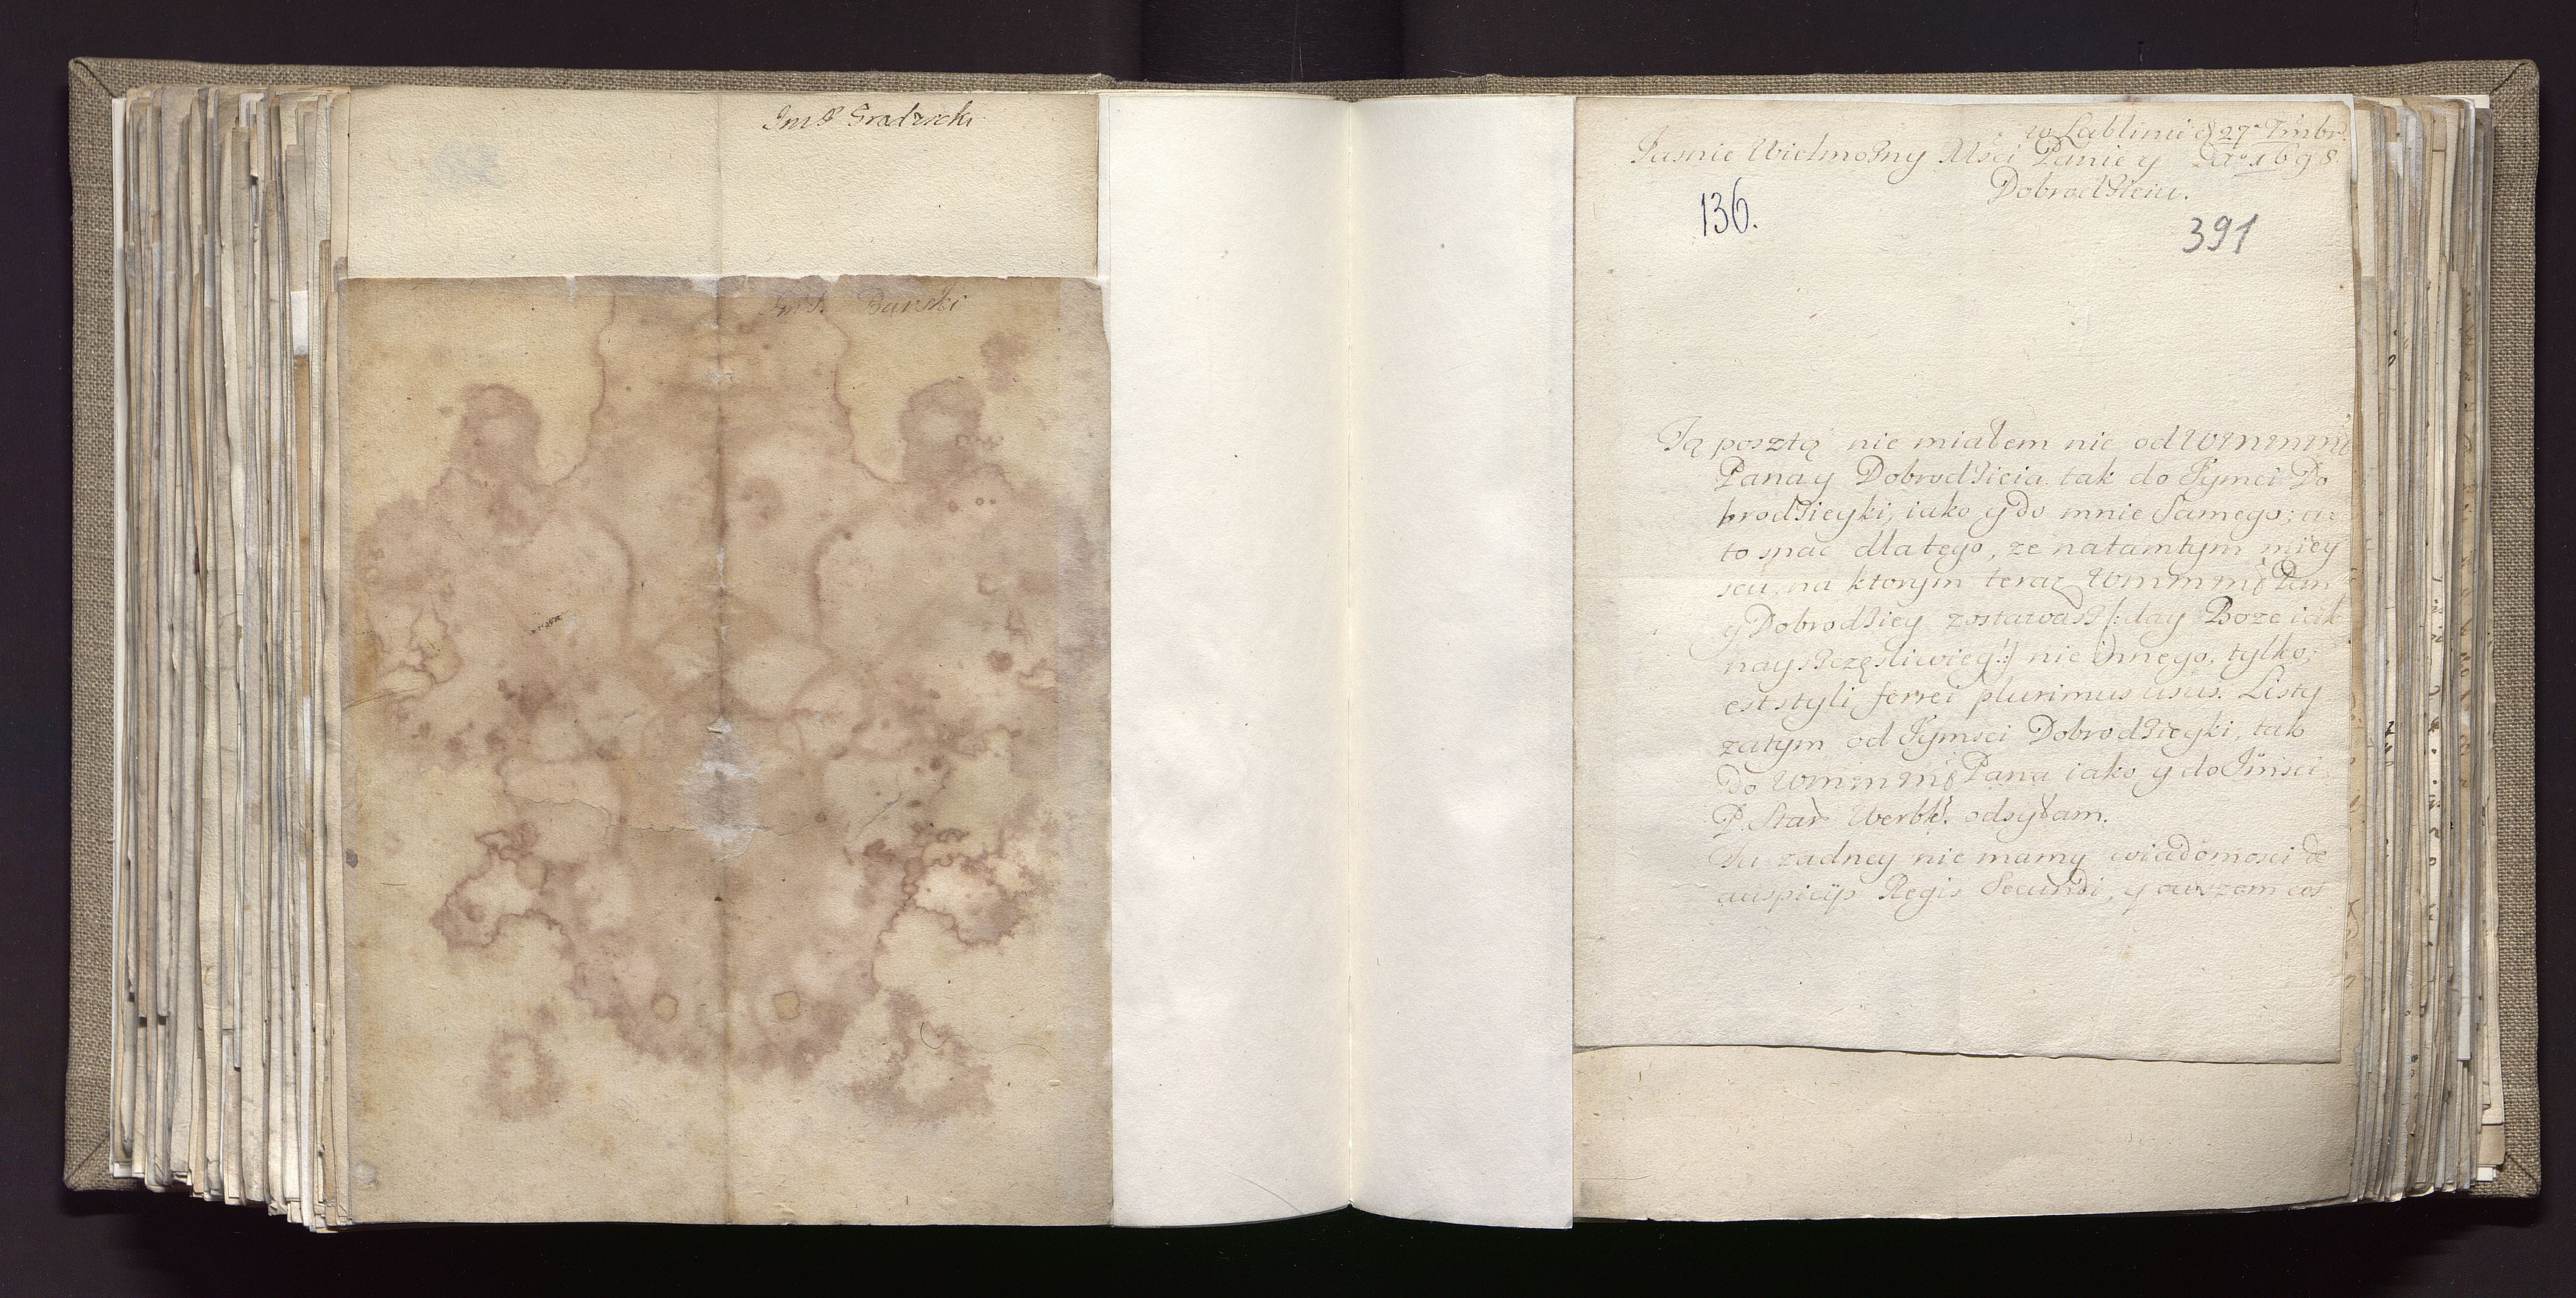 Jm P Gradzicki
Jm P. Barski
w Lublinie d 27 7mbr
Jasnie Wielmożny Mści Panie y Ao 1698
Dobrodzieiu.
136.
391
Tą posztą nie miałem nic od WMMM
Pana y Dobrodzieia tak do Jeymci Do
brodzieyki, iako y do mnie Samego; a
to snac dla tego, ze na tamtym miey
scu, na ktorym teraz WMMM Pan
y Dobrodziey zostawasz /: day Boze iak
nayszczęsliwiey :/ nic innego, tylko;
est styli ferrei plurimus usus. Listy
zatym od Jeymsci Dobrodzieyki, tak
do WMMM Pana iako y do Jmsci
P. Star Werbk. odsyłam.
Tu zadney nie mamy wiadomosci de
auspicijs Regis Secundi, y owszem cos